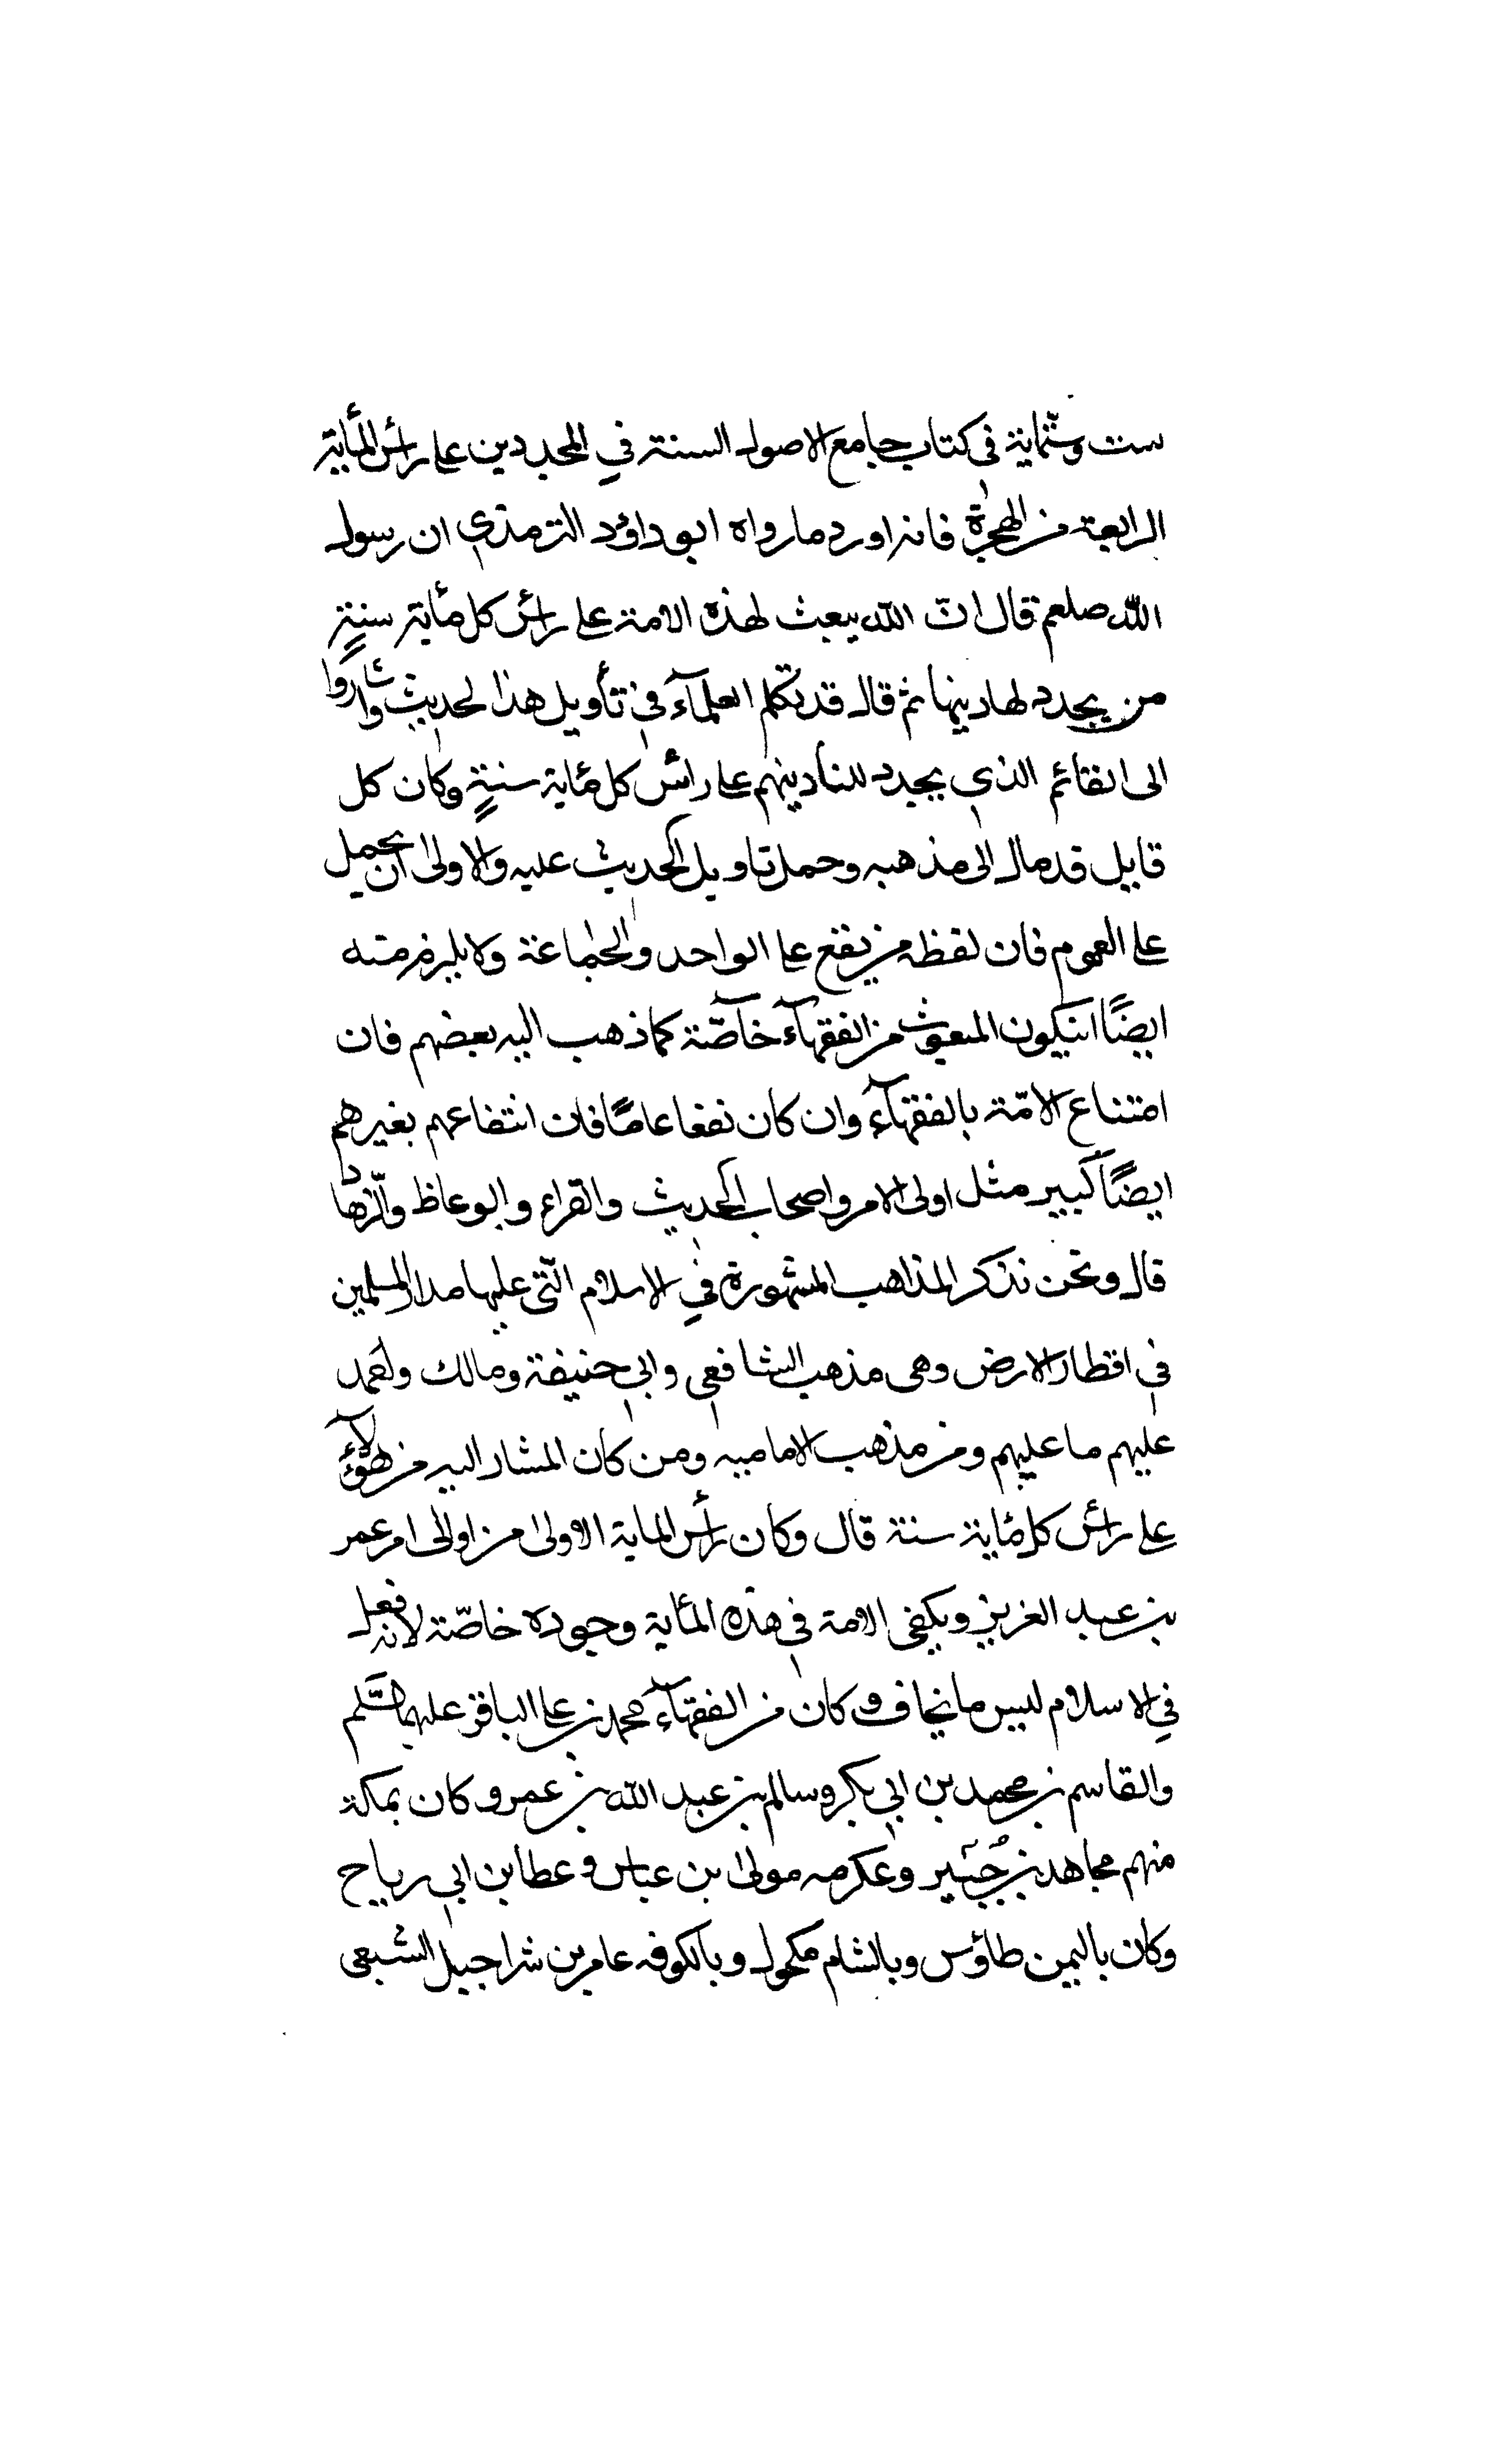 ست وستمایة فی كتاب جامع الاصول السنة في المجددین علی رأس المأیة
الرابعة من الهجرة فانه اورد مارواه ابو داؤد الترمذي ان رسول
اللّٰه صلعم قال انّ اللّٰه یبعث لهذه الامة علی رأس كل مأیة سنةٍ
من یجدد لها دینها ثم قال قد تكلم العلمآء فی تأویل هذا لحدیث واشاروا
الی القائم الذی یجدد للنا دینهم علی رائس كل مٔایة سنةٍ وكان كل
قایل قد مال الی مذهبه وحمل تاویل الحدیث علیه والاولیٰ ان یحمل
علی العموم فان لفظه من یقع علی الواحد والجماعة ولا یلزم منه
ایضًا انیكون المبعوث من الفقهآء خآصّة كما ذهب الیه بعضهم فان
امتناع الامّة بالفقهآء وان كان نفعا عامًا فان انتفاعهم بغیرهم
ایضًا كبیر مثل اولی الامر واصحاب الحدیث والقراء والوعاظ والزّهاد
قال ونحن نذكر المذاهب المشهورة في الاسلام الّتی علیها مدار المسلمین
فی اقطار الارض وهی مذهب الشافعی وابی حنیفة ومالك واحمد
علیهم ما علیهم ومن مذهب الامامیه ومن كان المشار الیه من هؤلآء
علی رأس كل مٔایة سنة قال وكان رأس المایة الاولیٰ من اولی امر عمر
بن عبد العزیز ویكفی الامة فی هذه المٔایة وجوده خاصّة لانه فعل
في الاسلام لیس ما نخاف وكان من الفقهآء محمد بن علی الباقر علیهما السّلم
والقاسم بن محمد بن ابی بكر وسالم بن عبد اللّٰه بن عمر وكان بمكة
منهم مجاهد بن جُبَیر وعكرمه مولیٰ بن عباس و عطا بن ابی ریاح
وكان بالیمن طاؤس وبالشام مكحول وبالكوفه عامر بن شراجیل الشبعی